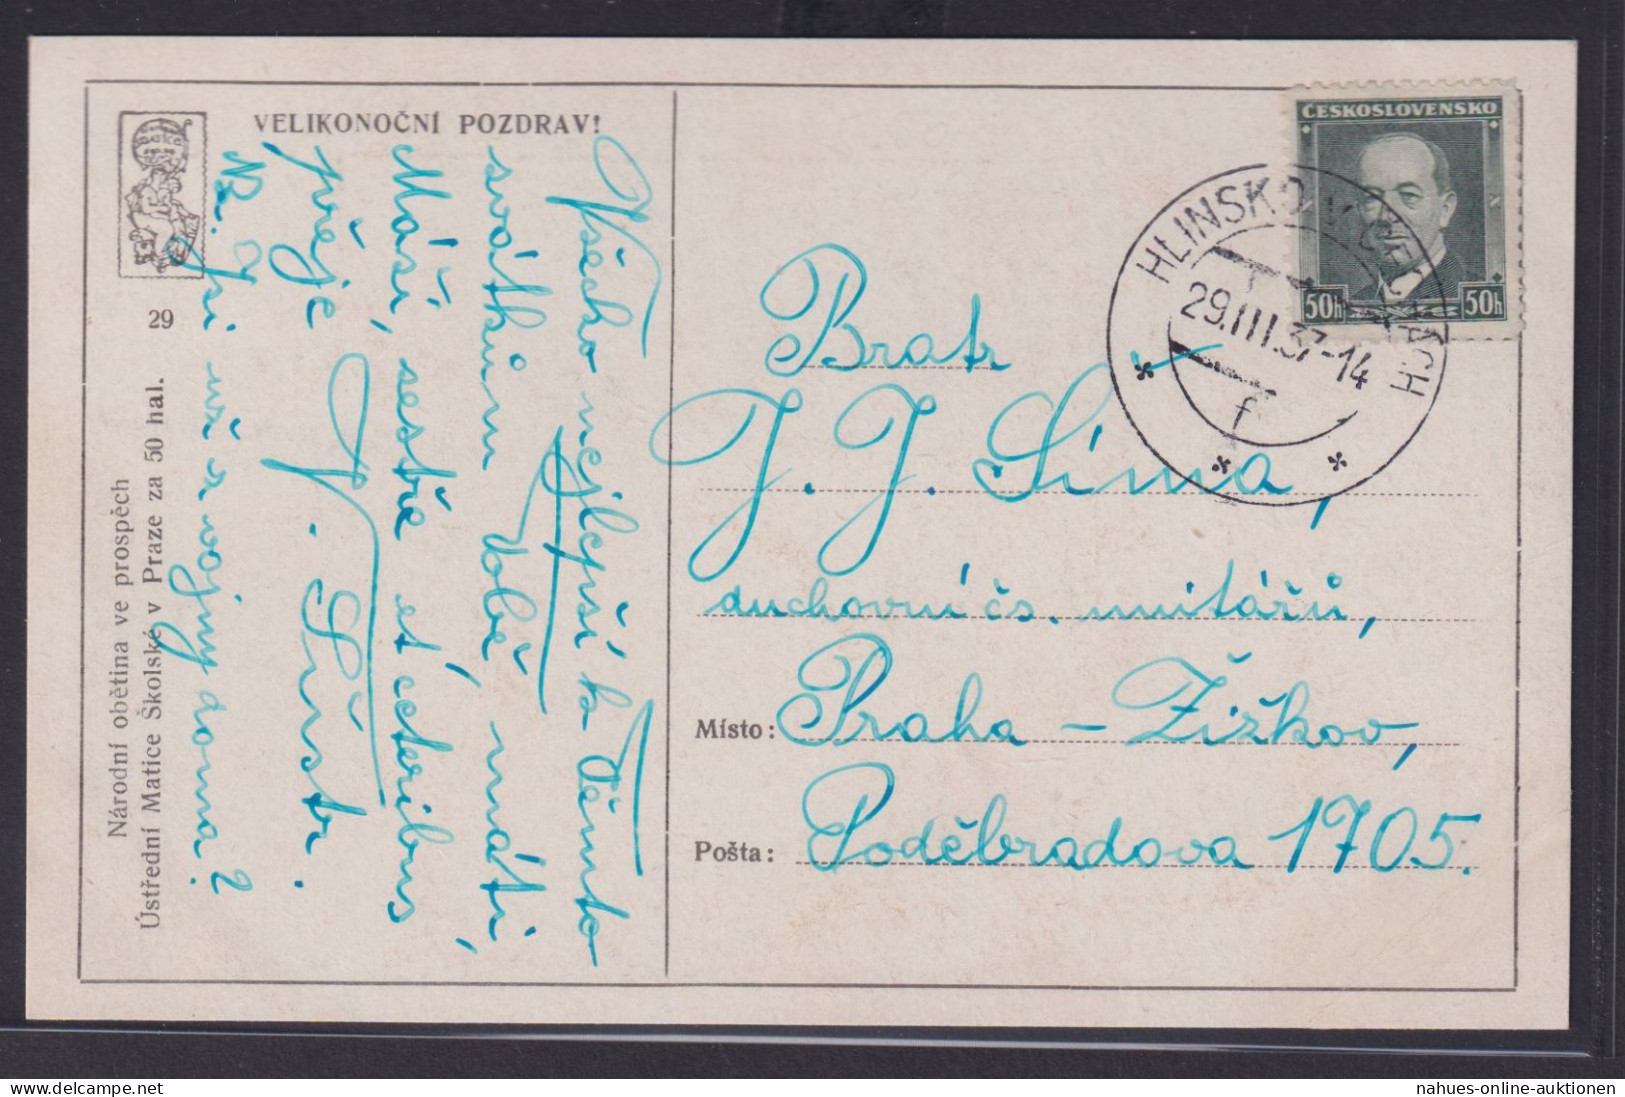 VELIKONOČNÍ POZDRAV!
29
Národní obětina ve prospěch
Ústřední Matice Školské v Praze za 50 hal.
Všecko nejlepší k těmto
svátkům Tobě, máti
Máši, sestře et ceteribus
přeje
J. Šustr.
NB. Jsi už s vojny doma?
ČESKOSLOVENSKO
50h 50h
HLINSKO V ČECHÁCH
29.III.37-14
f
Bratr
J. J. Šíma,
duchovní čs. unitářů,
Místo: Praha - Žižkov,
Pošta: Poděbradova 1705.
nahues-online-auktionen